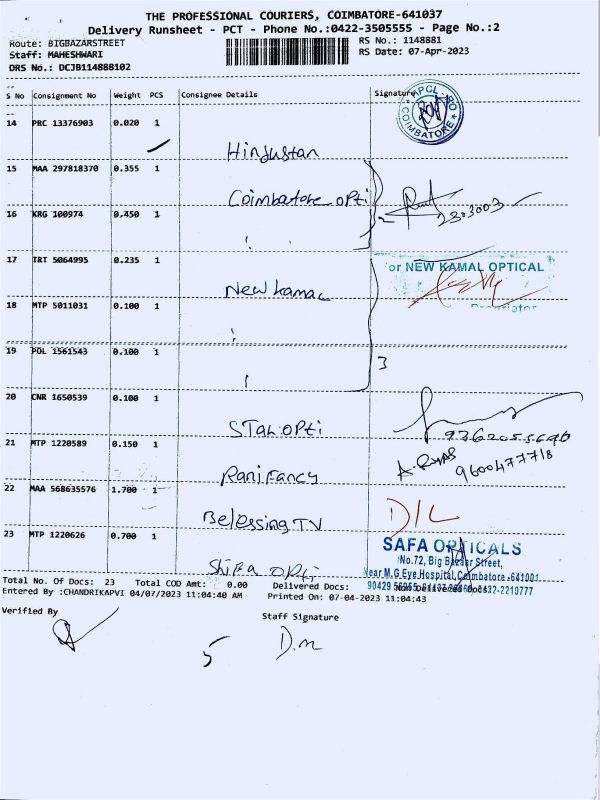 THE PROFESSIONAL COURIERS, COIMBATORE-641037
Delivery Runsheet - PCT - Phone No.:0422-3505555 - Page No.:2
Route: BIGBAZARSTREET
RS No.: 1148881
Staff: MAHESHWARI
RS Date: 07-Apr-2023
DRS No.: DCJB114888102
S No Consignment No Weight PCS Consignee Details Signature
HPCL-RO
COIMBATORE
14 PRC 13376903 0.020 1
Hindustan
15 MAA 297818370 0.355 1
Coimbatore opti
16 KRG 100974 0.450 1
2
17 TRT 5064995 0.235 1
or NEW KAMAL OPTICAL
New kamal
Proprietor
18 MTP 5011031 0.100 1
19 POL 1561543 0.100 1
3
20 CNR 1650539 0.100 1
STAR OPti
21 MTP 1220589 0.150 1
9600477718
Rani Fancy
22 MAA 568635576 1.700 1
D/L
Belessing TV
23 MTP 1220626 0.700 1
SAFA OPTICALS
No.72, Big Bazaar Street,
Near M.G Eye Hospital, Coimbatore -641001
Shifa opti
Total No. Of Docs: 23 Total COD Amt: 0.00 Delivered Docs: Non Delivered Docs:
Entered By :CHANDRIKAPVI 04/07/2023 11:04:40 AM Printed On: 07-04-2023 11:04:43
Verified By
Staff Signature
5
D.m